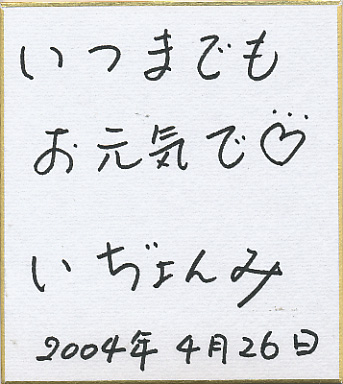 いつまでも
お元気で♡
いぢょんみ
2004年4月26日